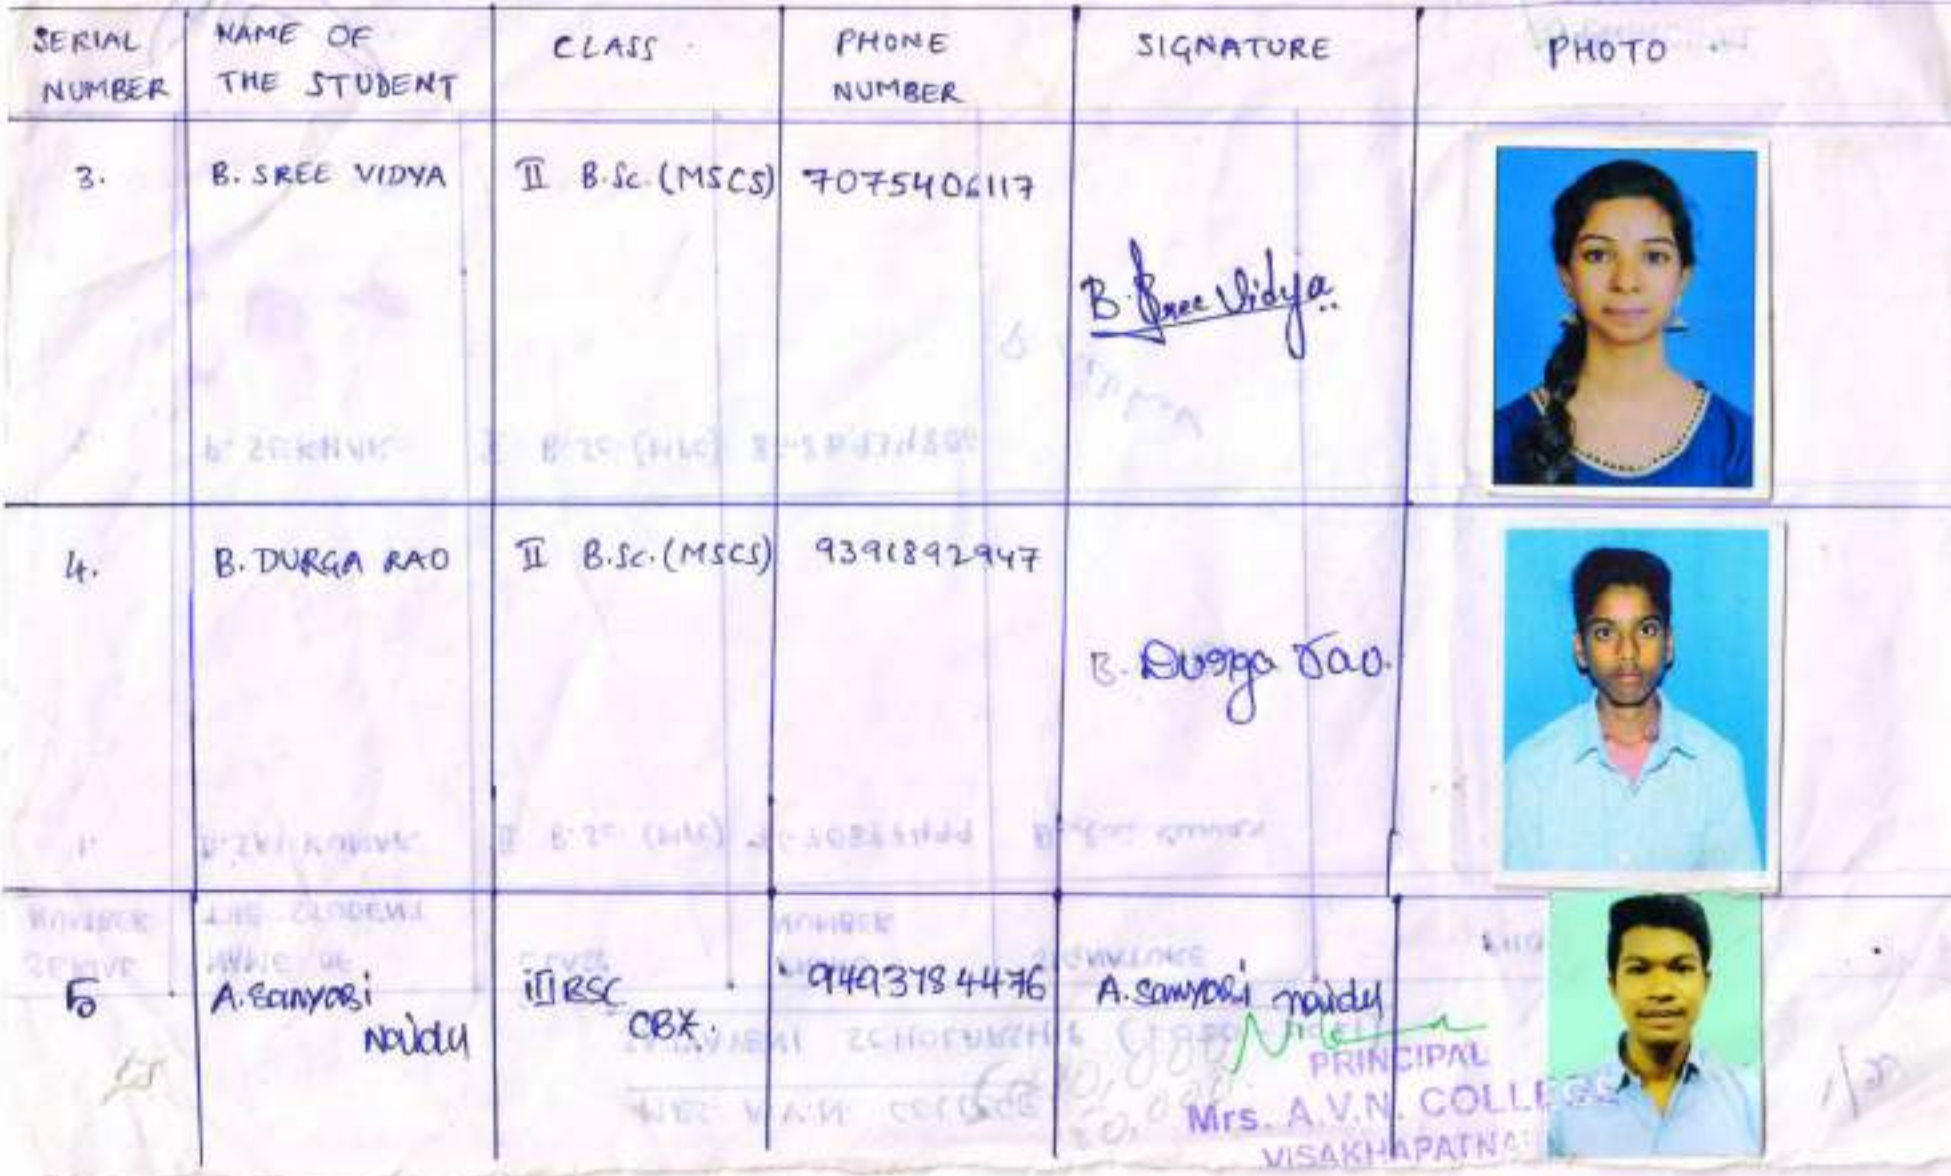 SERIAL NUMBER NAME OF THE STUDENT CLASS PHONE NUMBER SIGNATURE PHOTO
3. B. SREE VIDYA II B.Sc. (MSCS) 7075406117
B. Sree Vidya
4. B. DURGA RAO II B.Sc. (MSCS) 9391892947
B. Durga Rao.
5 A. Sanyasi Naidu III BSC CBZ. 9493784476 A. Sanyasi naidu
PRINCIPAL
Mrs. A.V.N. COLLEGE
VISAKHAPATNA